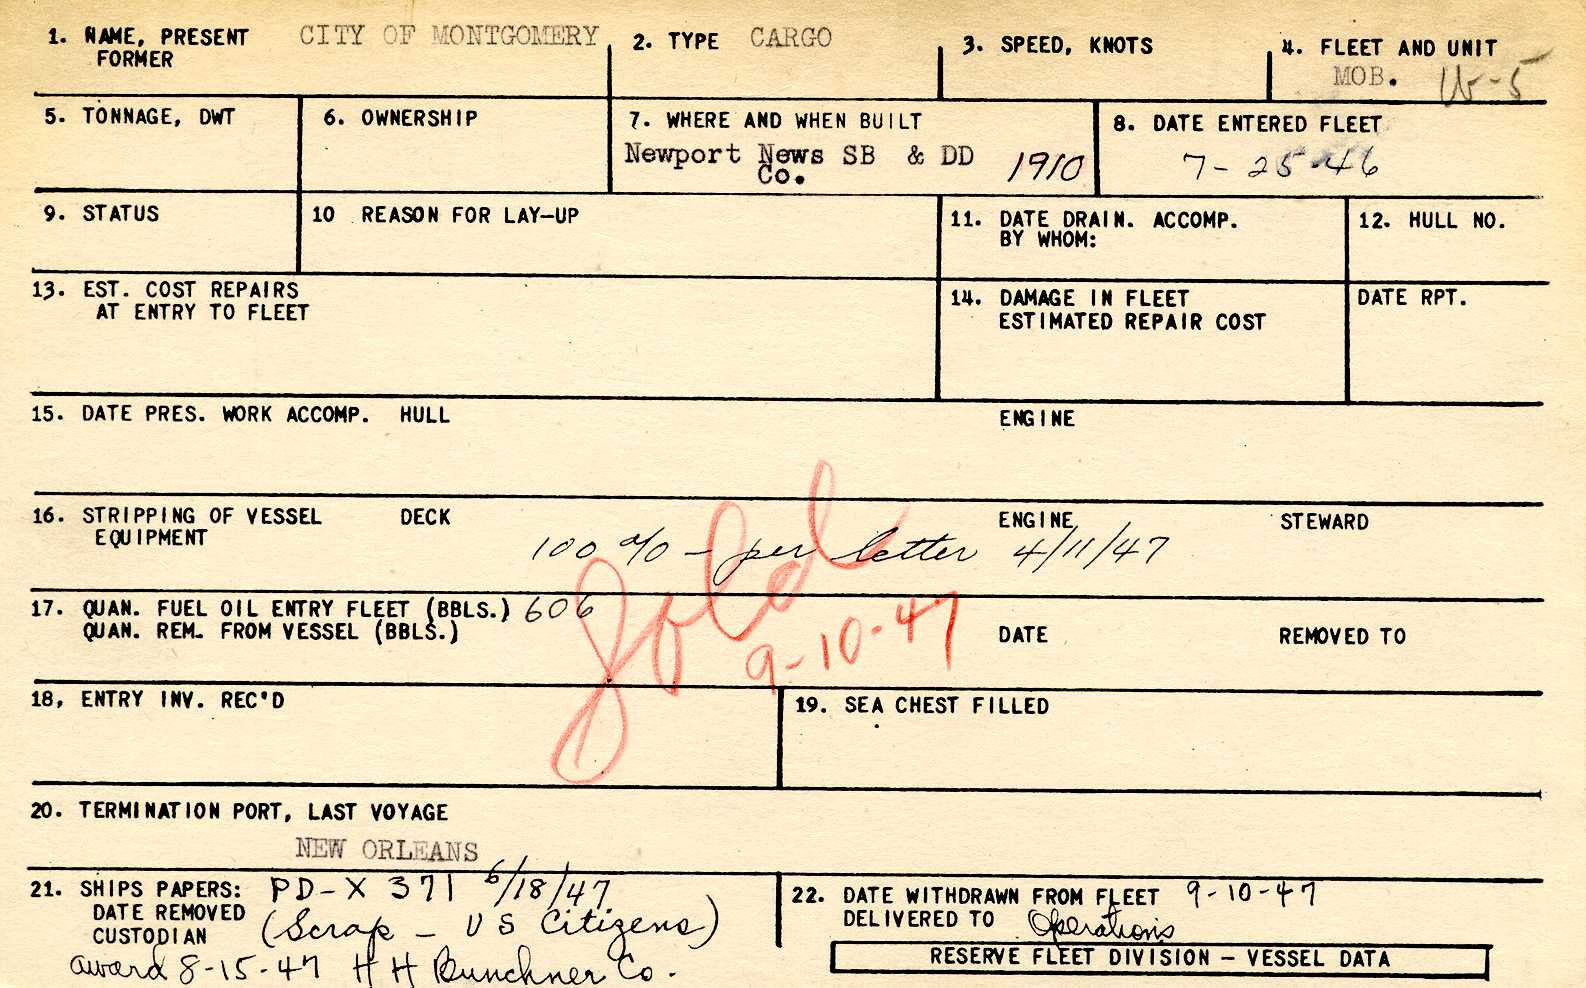 1. NAME, PRESENT CITY OF MONTGOMERY
FORMER
2. TYPE CARGO
3. SPEED, KNOTS
4. FLEET AND UNIT
MOB. W-5
5. TONNAGE, DWT
6. OWNERSHIP
7. WHERE AND WHEN BUILT
Newport News SB & DD
Co. 1910
8. DATE ENTERED FLEET
7-25-46
9. STATUS
10 REASON FOR LAY-UP
11. DATE DRAIN. ACCOMP.
BY WHOM:
12. HULL NO.
13. EST. COST REPAIRS
AT ENTRY TO FLEET
14. DAMAGE IN FLEET
ESTIMATED REPAIR COST
DATE RPT.
15. DATE PRES. WORK ACCOMP. HULL ENGINE
16. STRIPPING OF VESSEL DECK ENGINE STEWARD
EQUIPMENT
100 % - per letter 4/11/47
17. QUAN. FUEL OIL ENTRY FLEET (BBLS.) 606
QUAN. REM. FROM VESSEL (BBLS.) DATE REMOVED TO
Sold
9-10-47
18, ENTRY INV. REC'D
19. SEA CHEST FILLED
20. TERMINATION PORT, LAST VOYAGE
NEW ORLEANS
21. SHIPS PAPERS: PD-X 371 6/18/47
DATE REMOVED (Scrap - US Citizens)
CUSTODIAN
award 8-15-47 H H Bunchner Co.
22. DATE WITHDRAWN FROM FLEET 9-10-47
DELIVERED TO Operations
RESERVE FLEET DIVISION - VESSEL DATA